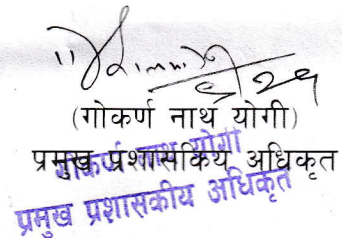 (गोकर्ण नाथ योगी)
प्रमुख प्रशासकिय अधिकृत
गोकर्ण नाथ योगी
प्रमुख प्रशासकीय अधिकृत